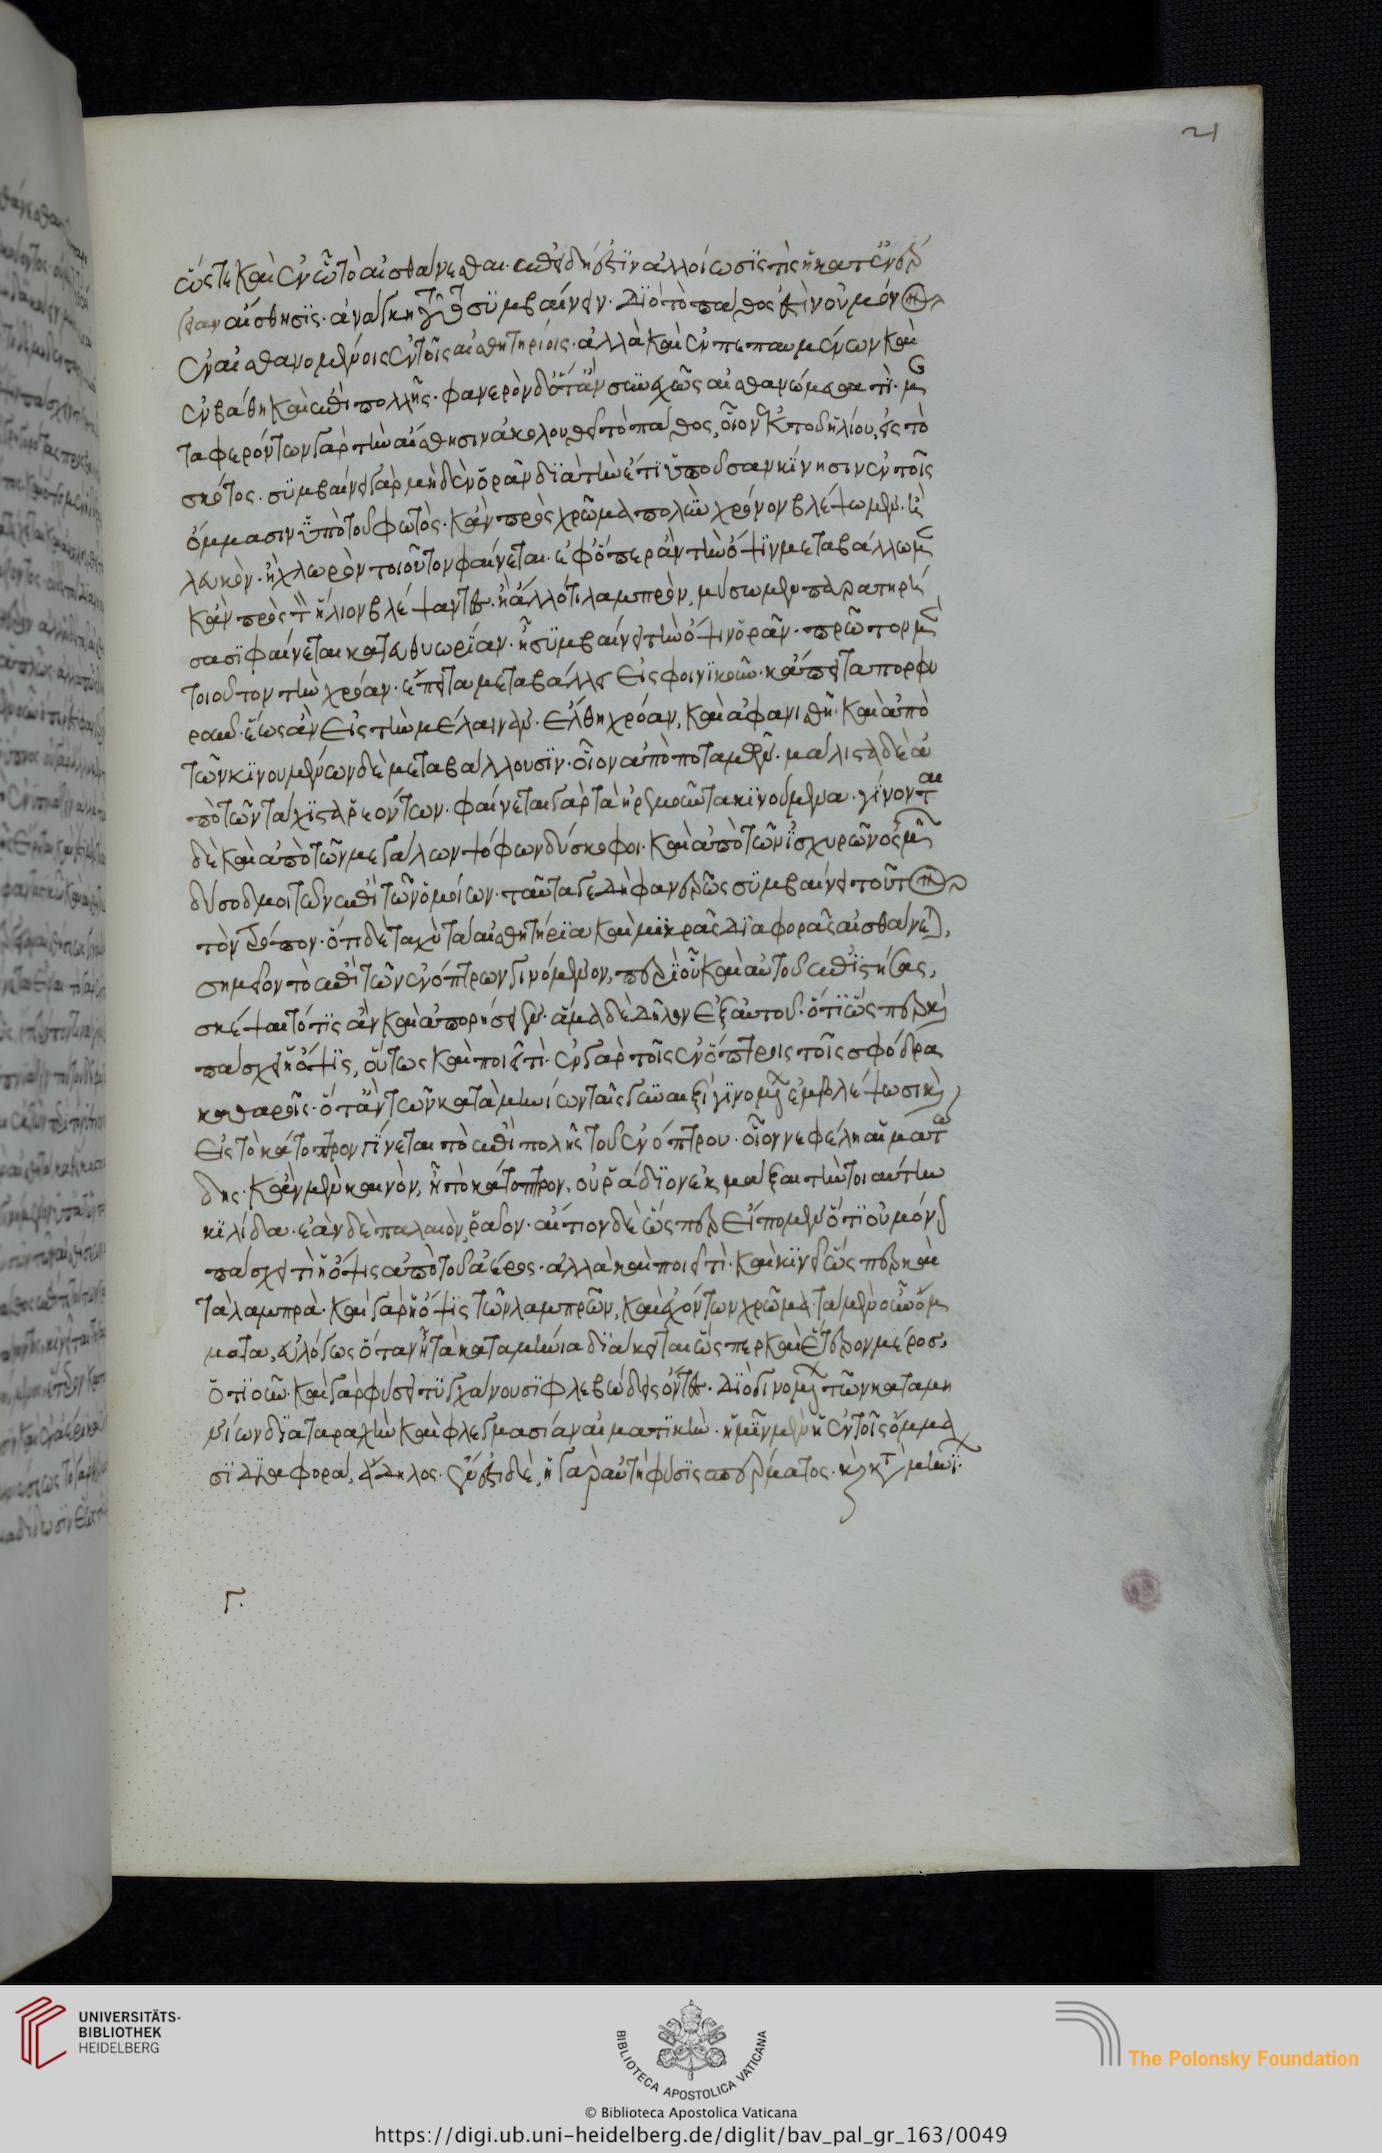 ὥστε καὶ ἐν ᾧ τὸ αἰσθάνεσθαι· ἐπειδή ἐστιν ἀλλοίωσίς τις ἡ κατ' ἐνέρ
γειαν αἴσθησις· ἀνάγκη τοῦτο συμβαίνειν· διὸ τὸ πάθος ἐστὶν οὐ μόνον
ἐν αἰσθανομένοις ἐν τοῖς αἰσθητηρίοις· ἀλλὰ καὶ ἐν πεπαυμένων καὶ
ἐν βάθει καὶ ἐπὶ πολλῆς· φανερὸν δ' ὅτ' ἂν συνεχῶς αἰσθανώμεθα τὶ· με
ταφερόντων γὰρ τὴν αἴσθησιν ἀκολουθεῖ τὸ πάθος, οἷον ἐκ τοῦ ἡλίου, εἰς τὸ
σκότος· συμβαίνει γὰρ μηδὲν ὁρᾶν διὰ τὴν ἔτι ὑποῦσαν κίνησιν ἐν τοῖς
ὄμμασιν ὑπὸ τοῦ φωτὸς· κἂν πρὸς χρῶμα πολὺν χρόνον βλέψωμεν· ἢ
λευκὸν· ἢ χλωρὸν τοιοῦτον φαίνεται· ἐφ' ὅπερ ἂν τὴν ὄψιν μεταβάλλωμεν
κἂν πρὸς τὸν ἥλιον βλέψαντες· ἢ ἀλλότι λαμπρὸν, μύσωμεν παρατηρή
σασι φαίνεται κατευθυωρίαν· ᾗ συμβαίνει τὴν ὄψιν ὁρᾶν· πρῶτον μὲν
τοιοῦτον τὴν χρόαν· ἔπειτα μεταβάλλει εἰς φοινικοῦν· κἄπειτα πορφυ
ροῦν· ἕως ἂν εἰς τὴν μέλαιναν· ἔλθη χρόαν, καὶ ἀφανισθῆ· καὶ ἀπὸ
τῶν κινουμένων δὲ μεταβάλλουσιν· οἷον ἀπὸ ποταμῶν· μάλιστα δὲ ἀ
πὸ τῶν τάχιστα ῥεόντων· φαίνεται γὰρ τὰ ἠρεμοῦντα κινούμενα· γίνονται
δὲ καὶ ἀπὸ τῶν μεγάλων ψόφων δύσκωφοι· καὶ ἀπὸ τῶν ἰσχυρῶν ὀσμῶν
δύσοδμοι τῶν ἐπὶ τῶν ὁμοίων· ταῦτα γε δὴ φανερῶς συμβαίνει τοῦτον
τὸν τρόπον· ὅτι δὲ ταχὺ τὰ αἰσθητήρια καὶ μικρᾶς διαφορᾶς αἰσθάνεται,
σημεῖον τὸ ἐπὶ τῶν ἐνόπτρων γινόμενον, περὶ οὗ καὶ αὐτοῦ ἐπιστήσας,
σκέψαιτό τις ἂν καὶ ἀπορήσειεν· ἅμα δὲ δῆλον ἐξ αὐτοῦ· ὅτι ὥσπερ καὶ
πάσχει ἡ ὄψις, οὕτως καὶ ποιεῖ τὶ· ἐν γὰρ τοῖς ἐνόπτροις τοῖς σφόδρα
καθαροῖς· ὅτ' ἂν τῶν καταμηνίων ταῖς γυναιξὶ γινομένων ἐμβλέψωσιν
εἰς τὸ κάτοπτρον γίνεται τὸ ἐπὶ πολῆς τοῦ ἐνόπτρου· οἷον νεφέλη αἱματώ
δης· κἂν μὲν καινὸν, ἦ τὸ κάτοπτρον, οὐ ῥάδιον ἐκμάξαι τὴν τοιαύτην
κιλίδα· ἐὰν δὲ παλαιὸν, ῥᾶον· αἴτιον δὲ ὥσπερ εἴπομεν ὅτι οὐ μόνον
πάσχει τὶ ἡ ὄψις ἀπὸ τοῦ ἀέρος· ἀλλὰ καὶ ποιεῖ τὶ· καὶ κινεῖ ὥσπερ καὶ
τὰ λαμπρὰ· καὶ γὰρ ἡ ὄψις τῶν λαμπρῶν, καὶ ἐχόντων χρῶμα· τὰ μὲν οὖν ὄμ
ματα, εὐλόγως ὅταν ἦ τὰ καταμήνια διάκειται ὥσπερ καὶ ἕτερον μέρος,
ὁτιοῦν· καὶ γὰρ φύσει τυγχάνουσι φλεβώδεις ὄντες· διὸ γινομένων τῶν καταμη
νίων διὰ ταραχὴν καὶ φλεγμασίαν αἱματικὴν· ἡμῖν μὲν ἡ ἐν τοῖς ὄμμα
σι διαφορὰ, ἄδηλος· ἔνεστι δὲ, ἡ γὰρ αὐτὴ φύσις σπέρματος· καὶ καταμηνίων·
Γ.
21
UNIVERSITÄTS-
BIBLIOTHEK
HEIDELBERG
BIBLIOTECA APOSTOLICA VATICANA
The Polonsky Foundation
© Biblioteca Apostolica Vaticana
https://digi.ub.uni-heidelberg.de/diglit/bav_pal_gr_163/0049